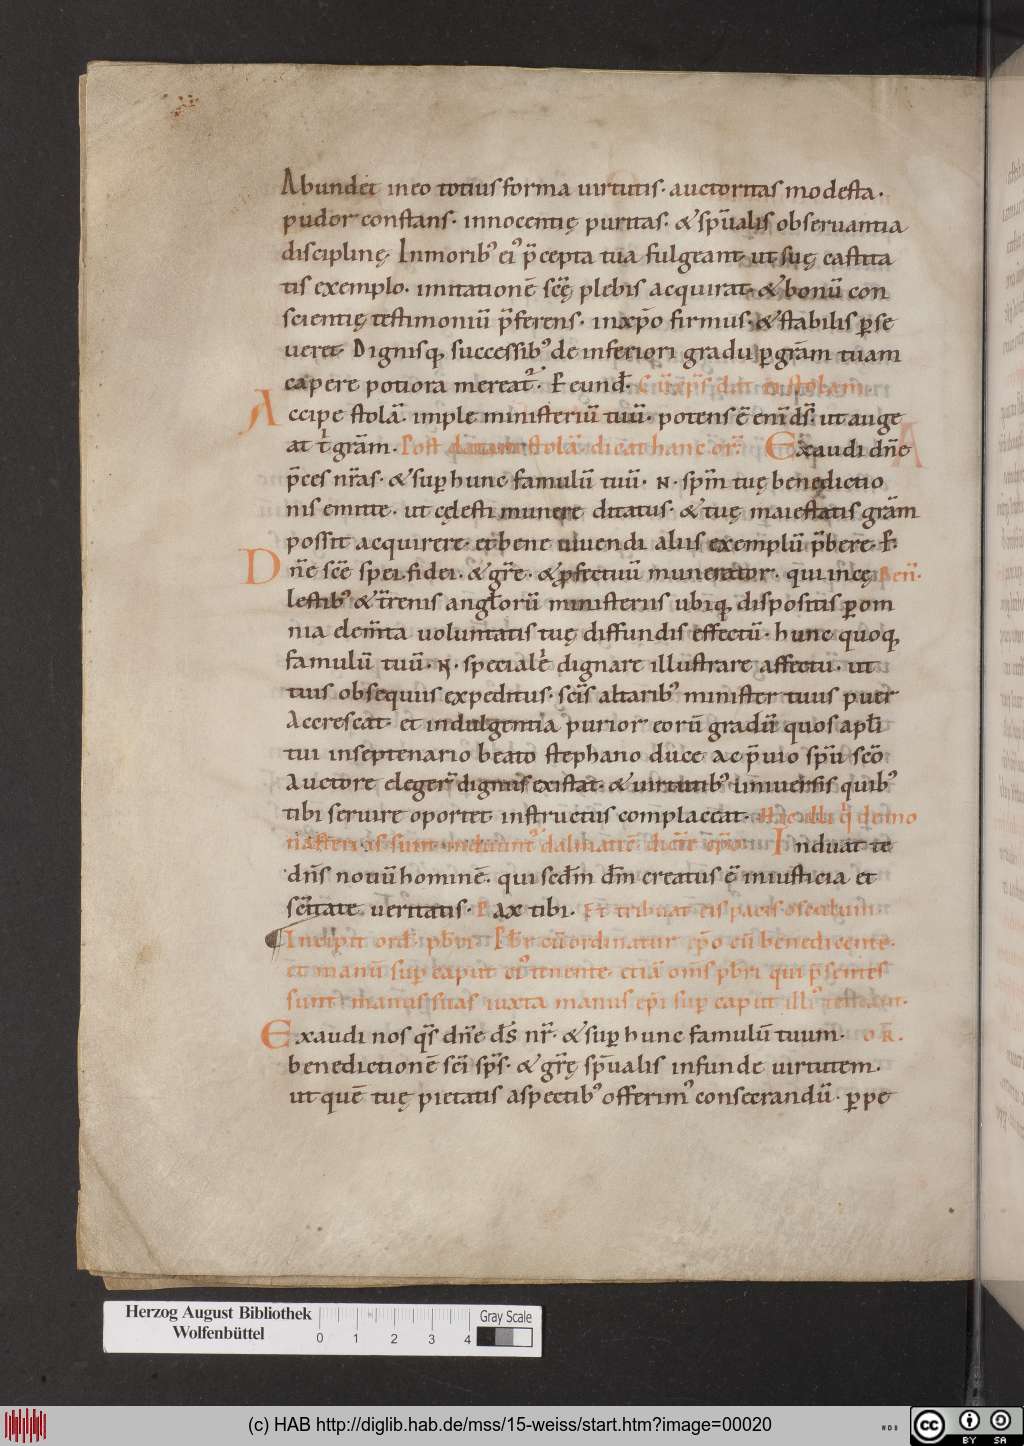 Abundet in eo totius forma uirtutis· auctoritas modesta·
pudor constans· innocentię puritas· & sp̄ualis obseruantia
disciplinę. In morib; ei᾽ p̄cepta tua fulgeant· ut suę castita
tis exemplo· imitationē scę̄ plebis acquirat· & bonū con
scientię testimoniū p̄ferens· in xp̄o firmus· & stabilis ꝑse
ueret· Dignisq; successib; de inferiori gradu ꝑ grām tuam
capere potiora mereat᾽·
A
ccipe stolā· imple ministeriū tuū· potens ē eni d̄s· ut auge
at t̄ grām· Post datam stolā dicat hanc or̄· Exaudi dn̄e
p̄ces nr̄as· & suꝑ hunc famulū tuū· N· sp̄m tuę benedictio
nis emitte· ut cęlesti munere ditatus· & tuę maiestatis grām
possit acquirere· et bene uiuendi aliis exemplū p̄bere·
D
n̄e scē spei· fidei· & gr̄e· & ꝓfectuū munerator· qui in cę
lestib; & tr̄enis angl̄orū ministeriis ubiq; dispositis ꝑ om
nia elem̄ta uoluntatis tuę diffundis effectū· hunc quoq;
famulū tuū· N· speciale dignare illustrare affectu· ut
tuis obsequiis expeditus· scīs altarib; minister tuus purꝰ
Accrescat· et indulgentia purior eorū gradū quos apl̄i
tui in septenario beato stephano duce ac p̄uio sp̄u scō
Auctore eleger̄ dignus existat· & uirtutib; uniuersis quib;
tibi seruire oportet instructus complaceat·
Induat te
dn̄s nouū hominē· qui sedm̄ dm̄ creatus ē in iusticia et
sc̄itate ueritatis· Pax tibi· Et tribuat eis pacis osculum·
Incipit ord̄ pb̄ri· Pb̄r cū ordinatur ep̄o eū benedicente·
et manū suꝑ caput ei᾽ tenente· etiā om̄s pb̄ri qui p̄sentes
sunt manus suas iuxta manus ep̄i suꝑ caput illi᾽
Exaudi nos qs̄ dn̄e d̄s nr̄· & suꝑ hunc famulū tuum· OR·
benedictionē scī sp̄s· & gr̄ę sp̄ualis infunde uirtutem·
ut quē tuę pietatis aspectib; offerim᾽ consecrandū· ꝑpe
Herzog August Bibliothek
Wolfenbüttel
0 1 2 3 4
Gray Scale
(c) HAB http://diglib.hab.de/mss/15-weiss/start.htm?image=00020
cc BY SA